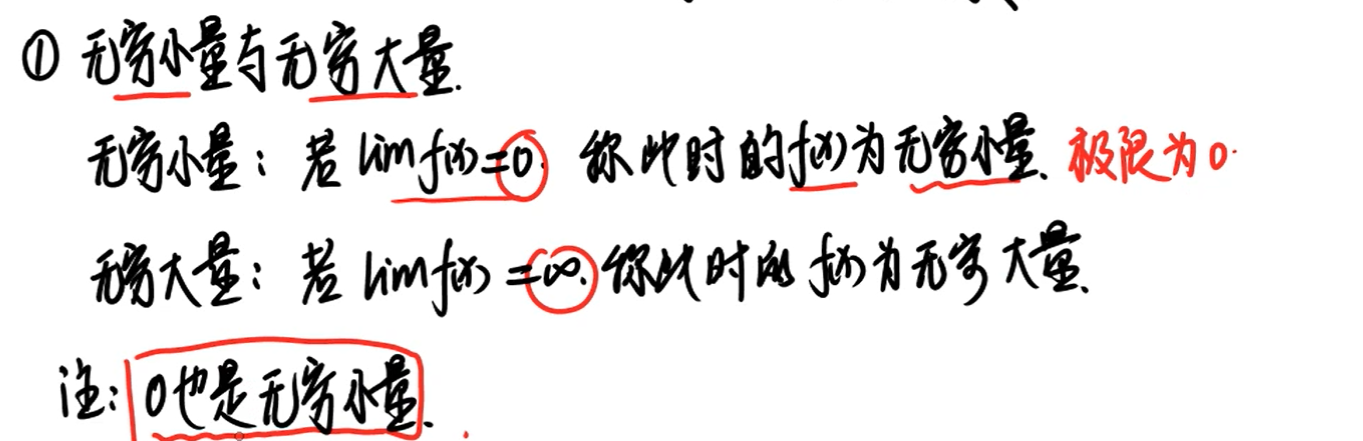 ① 无穷小量与无穷大量.
无穷小量: 若 lim f(x) = 0. 称此时的 f(x) 为无穷小量. 极限为0.
无穷大量: 若 lim f(x) = ∞. 称此时的 f(x) 为无穷大量.
注: 0也是无穷小量.